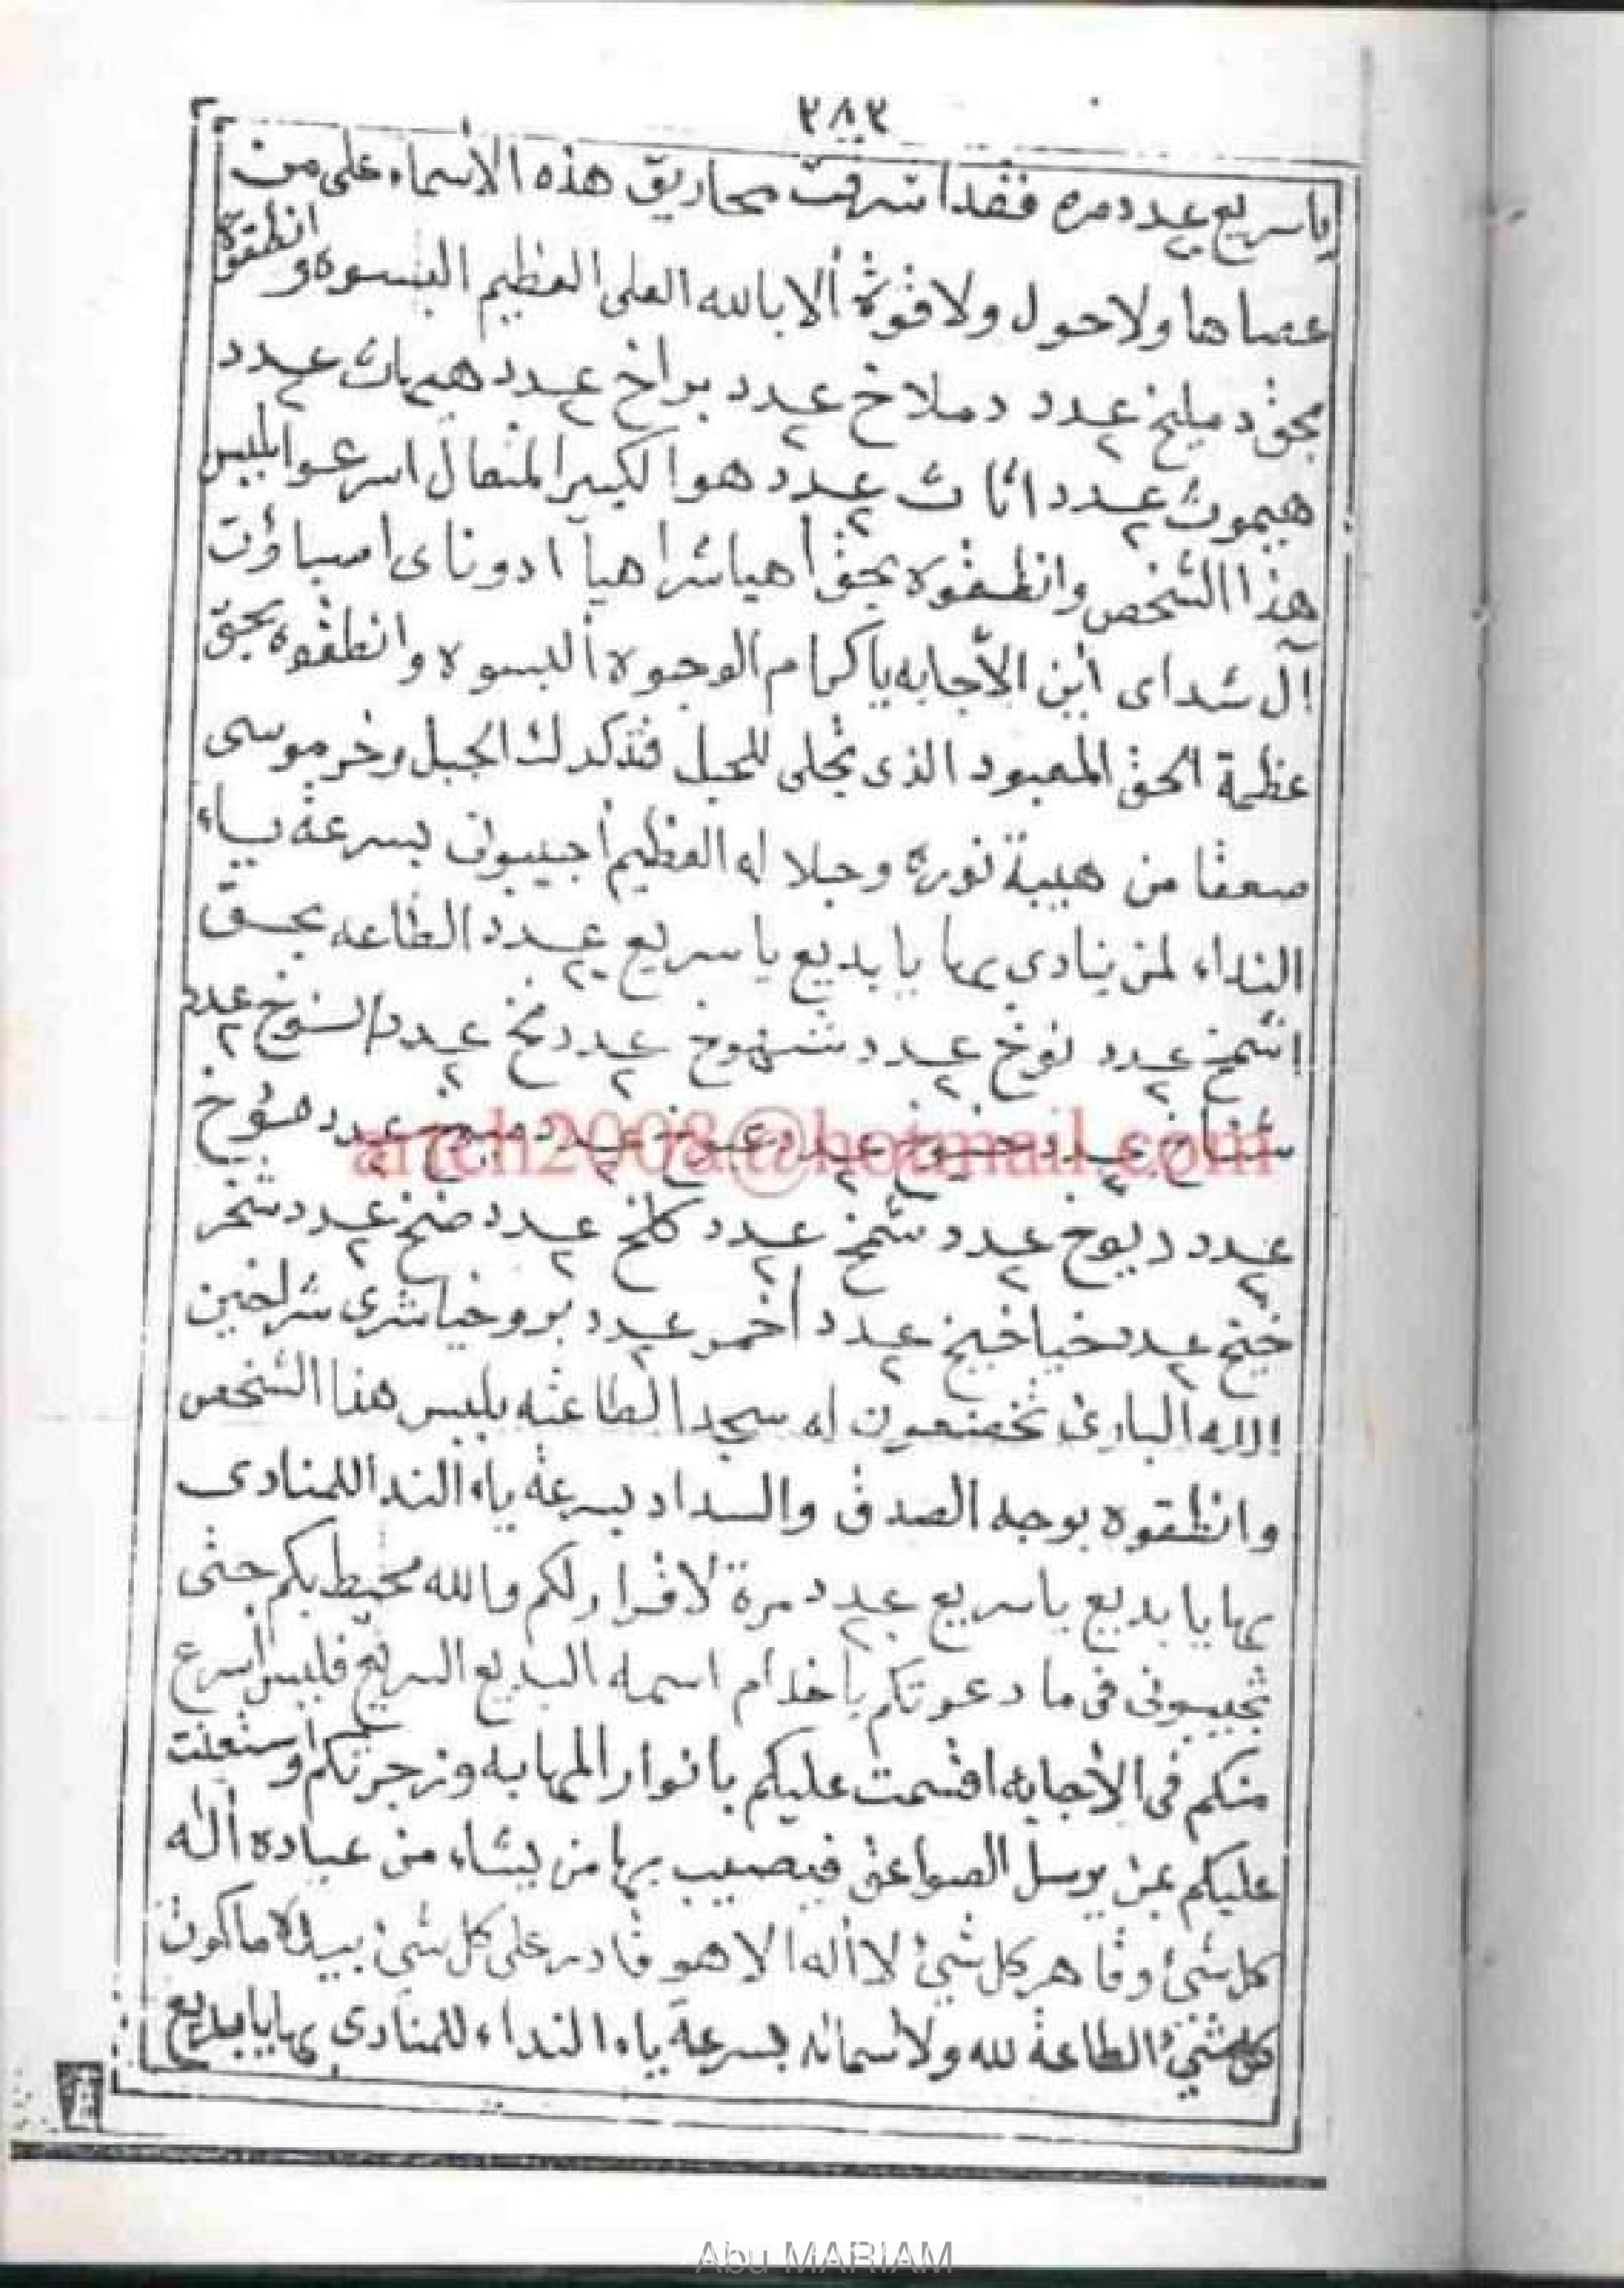 ٢٨٢
ياسريع عدد مره فقد اشرقت محاريق هذه الأسماء على من
عصاها ولا حول ولا قوة ألا بالله العلى العظيم البسوه وانطقوه
بحق دميليخ عدد ٢ دملاخ عدد ٢ براخ عدد ٢ هيهات عدد ٢
هيموث عدد ٢ اثاث عدد ٢ هو الكبير المتعال اسرعوا بلبيس
هذا الشخص وانطقوه بحق أهيا شراهيا ادوناى اصباؤت
آل شداى اين الأجابه ياكرام الوجوه ألبسوه وانطقوه بحق
عظمة الحق المعبود الذى تجلى للجبل فتدكدك الجبل وخر موسى
صعقا من هيبة نوره وجلاله العظيم أجيبونى بسرعة ياء
النداء لمن ينادى بها يا بديع يا سريع عدد الطاعه بحق
اشمخ عدد ٢ نوخ عدد ٢ شنهوخ عدد ٢ نخ عدد ٢ عدد ٢
عدد ٢ عدد ٢ عدد ٢ عدد ٢ هنوخ
عدد ٢ ديوخ عدد ٢ شمخ عدد ٢ كلخ عدد ٢ ضخ عدد ٢ شخر
عدد ٢ عدد ٢ أخمر عدد ٢
الاله البارئ تخضعون له سجدا لطاعته بلبس هذا الشخص
وانطقوه بوجه الصدق والسداد بسرعة ياء الندا للمنادى
بها يا بديع ياسريع عدد مرة لا قرار لكم والله محيط بكم حتى
تجيبونى فى ما دعوتكم ياخدام اسمه البديع السريع فليس أسرع
منكم فى الأجابة اقسمت عليكم بانوار المهابه وزجرتكم وأستعنت
عليكم بمن يرسل الصواعق فيصيب بها من يشاء من عباده أله
كل شئ وقاهر كل شئ لا أله الا هو قادر على كل شئ بيده ملكوت
كل شئ الطاعة لله ولأسمائه بسرعة ياء النداء للمنادى بها يا بديع
artch2008@hotmail.com
Abu MARIAM